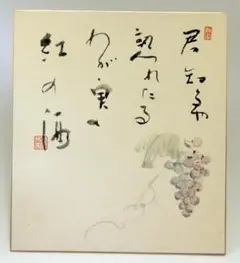 君知るや
熟れたる
わが実の
紅の酒